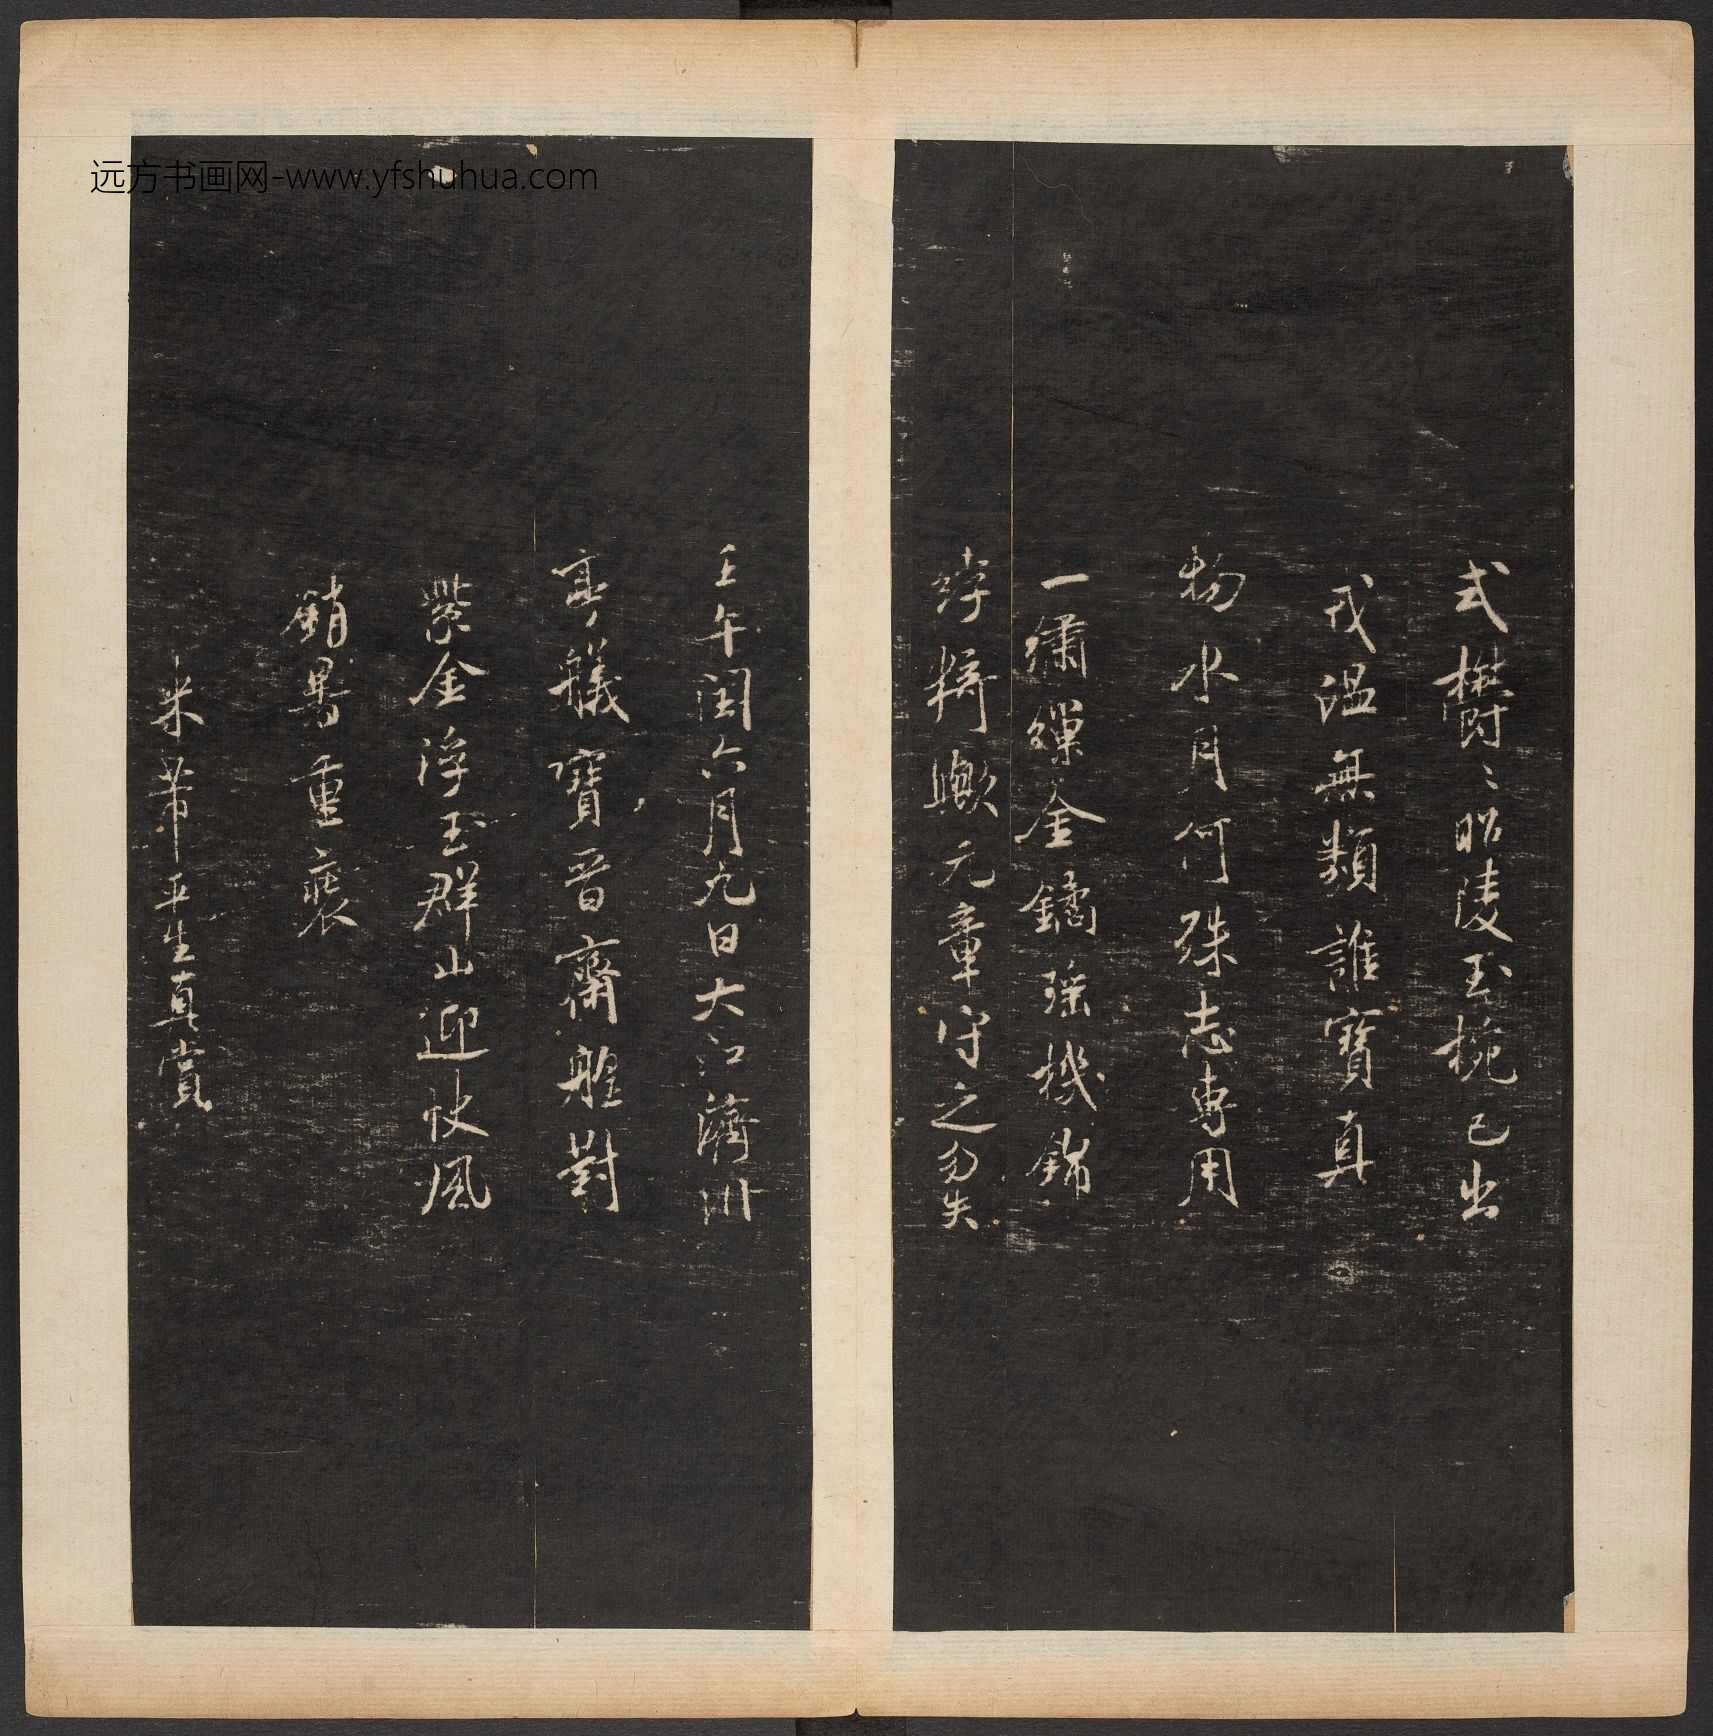 远方书画网-www.yfshuhua.com
式欝〻昭陵玉椀已出
戎温無類誰寶真
物水月何殊志專用
一繡繅金鐍瑶機錦
綷猗歟元章守之勿失
壬午閏六月九日大江濟川
亭艤寶晉齋艎對
紫金浮玉群山迎快風
銷暑重裝
米芾平生真賞